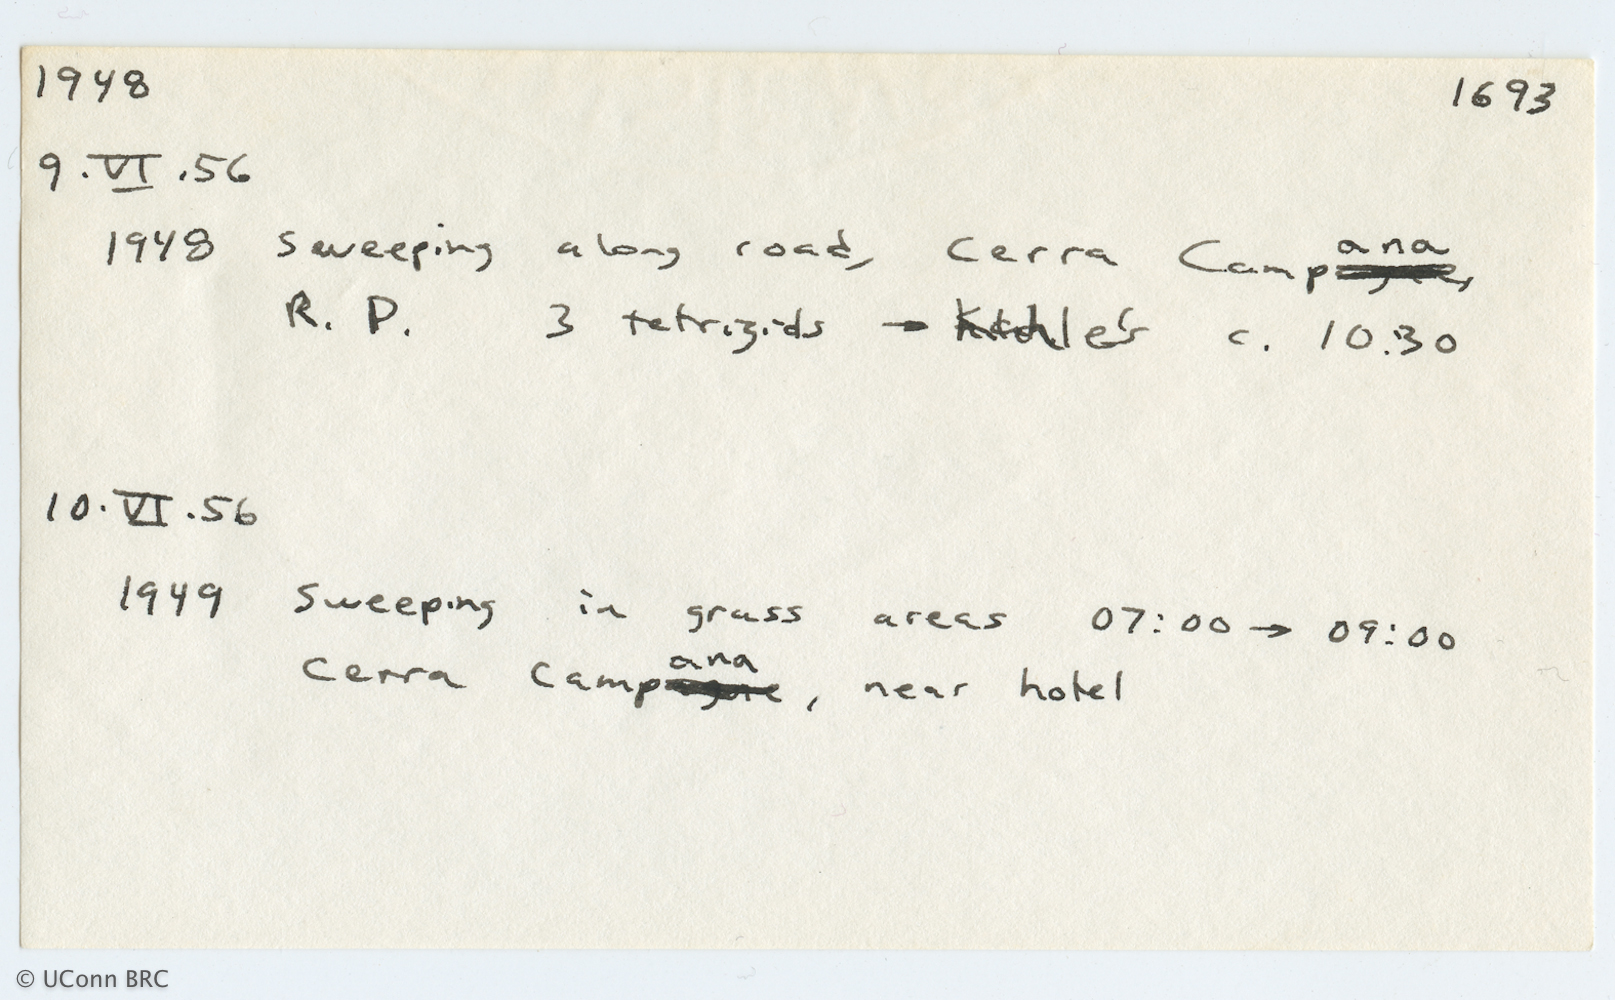 1948 1693
9.VI.56
1948 Sweeping along road, Cerra Campana,
R. P. 3 tetrizids → c. 10.30
10.VI.56
1949 Sweeping in grass areas 07:00 → 09:00
Cerra Campana, near hotel
© UConn BRC